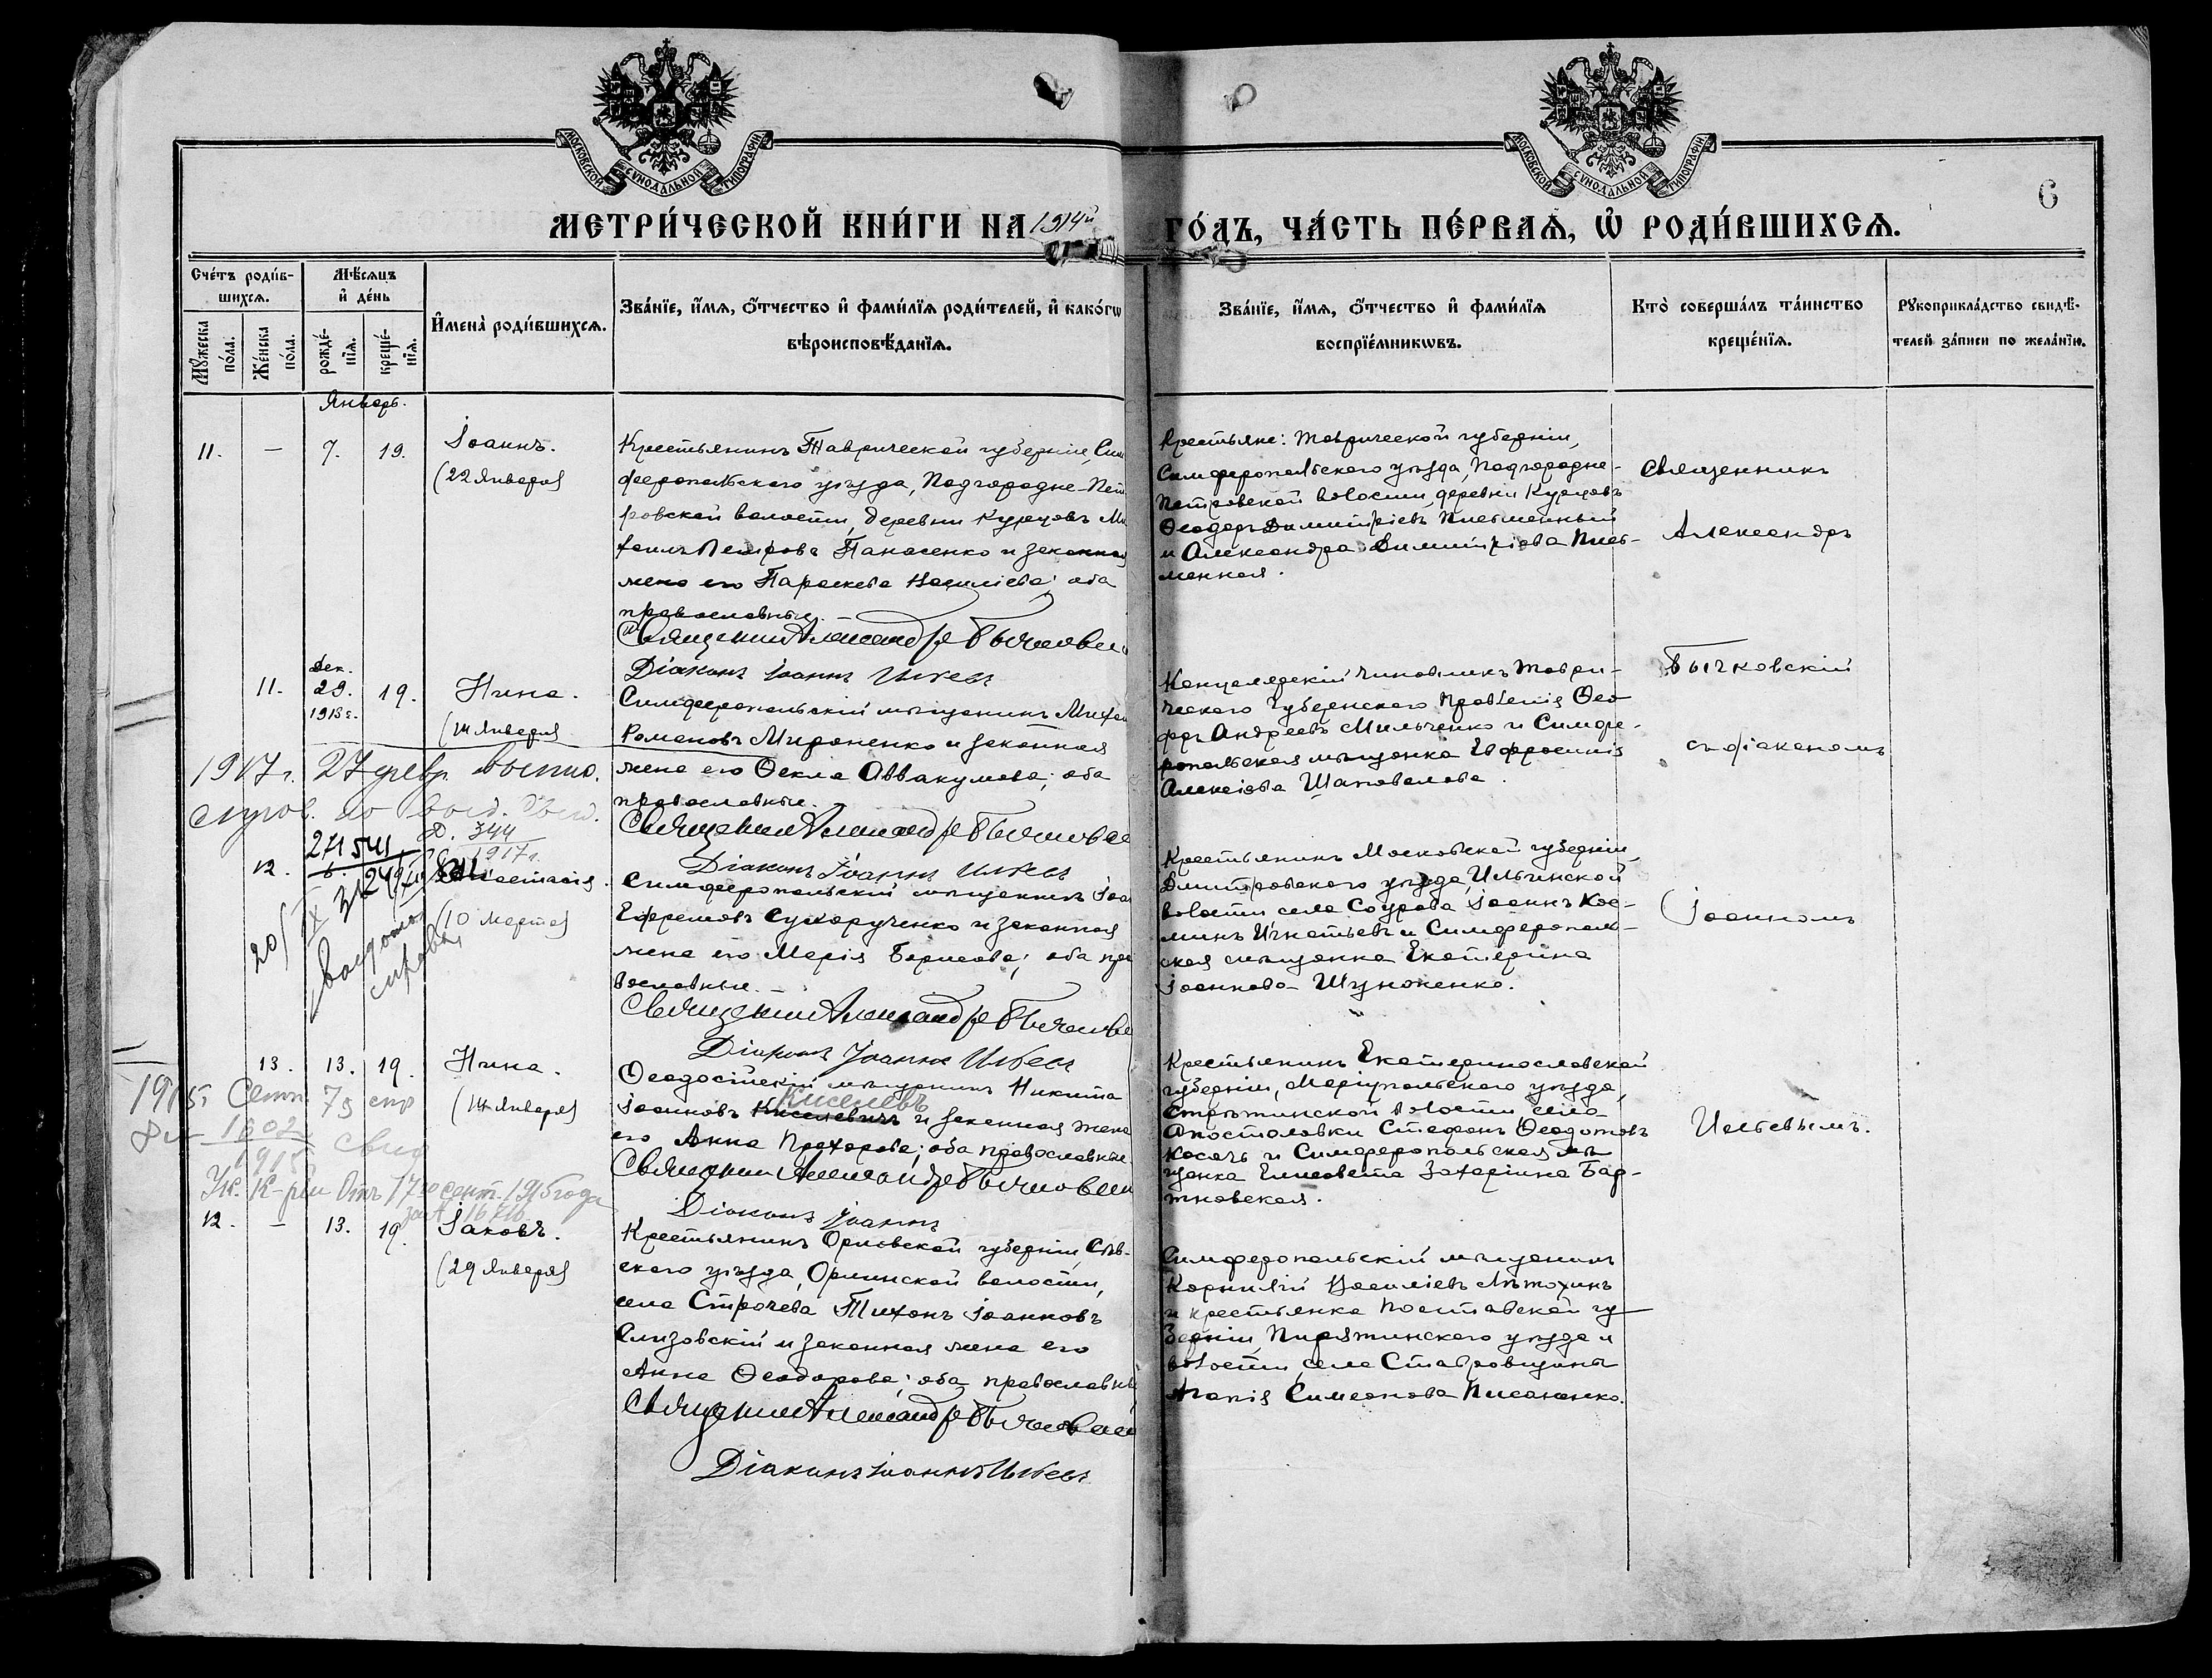 МОСКОВСКОЙ СѴНОДАЛЬНОЙ ТИПОГРАФІИ
МОСКОВСКОЙ СѴНОДАЛЬНОЙ ТИПОГРАФІИ
6
МЕТРИ́ЧЕСКОЙ КНИ́ГИ НА 1914й ГО́ДЪ, ЧА́СТЬ ПЕ́РВАѦ, Ѡ РОДИ́ВШИХСѦ.
Счетъ родив-
шихсѧ.
Мꙋжеска пола.
Женска пола.
Мѣсѧцъ
и день
рожде-
нїѧ.
креще-
нїѧ.
Имена родившихсѧ.
Званїе, имѧ, ѻтчество и фамилїѧ родителей, и какогѡ
вѣроисповѣданїѧ.
Званїе, имѧ, ѻтчество и фамилїѧ
воспрїемникѡвъ.
Кто совершалъ таинство
крещенїѧ.
Рꙋкоприкладство свидѣ-
телей записи по желанїю.
Январь.
11. — 7. 19. Іоаннъ.
(22 Января)
Крестьянинъ Таврической губерніи, Сим
феропольского уѣзда, Подгородне-Пет
ровской волости, деревни Курцовъ Ми
хаилъ Петровъ Панасенко и законная
жена его Параскева Василіева; оба
православные.
Священникъ Александръ Бычковскі
Діаконъ Іоаннъ Ильевъ
Крестьяне: Таврической губерніи,
Симферопольского уѣзда, Подгородне-
Петровской волости, деревни Курцовъ
Ѳеодоръ Димитріевъ Письменный
и Александра Димитріева Пись-
менная.
Священникъ
Александръ
Бычковскій
съ діакономъ
Іоанномъ
Ильевымъ.
11. Дек. 29. 1913 г. 19. Нина.
(14 Января)
Симферопольскій мѣщанинъ Михаи
Романовъ Мироненко и законная
жена его Ѳекла Аввакумова; оба
православные.
Священникъ Александръ Бычковск
Діаконъ Іоаннъ Ильевъ
Канцелярскій чиновникъ Таври-
ческого Губернского Правленія Ѳео-
доръ Андреевъ Мильченко и Симфе-
ропольская мѣщанка Евфросинія
Алексіева Шаповалова.
1917 г. 27 февр.
344
1917 г.
12. 6. Анастасія.
(10 Марта)
Симферопольскій мѣщанинъ Іоан
Ефремовъ Сухорученко и законная
жена его Марія Борисова; оба пра
вославные.
Священникъ Александръ Бычковс
Діаконъ Іоаннъ Ильевъ
Крестьянинъ Московской губерніи,
Дмитровского уѣзда, Ильинской
волости села Іоаннъ Кос-
минъ Игнатьевъ и Симферополь-
ская мѣщанка Екатерина
Іоаннова
13. 13. 19. Нина.
(14 Января)
Ѳеодосійскій мѣщанинъ Никита
Іоанновъ Киселевичъ Киселевъ и законная жена
его Анна Прохорова; оба православные.
Священникъ Александръ Бычковскі
Діаконъ Іоаннъ
Крестьянинъ Екатеринославской
губерніи, Маріупольского уѣзда,
волости, села
Апостоловки Стефанъ Ѳеодотовъ
Косачъ и Симферопольская мѣ-
щанка Елисавета Захаріина Бар-
тновская.
1915 Сент.
1602
1915
От 17го сент. 1915 года
12. — 13. 19. Іаковъ.
(29 Января)
Крестьянинъ Орловской губерніи, Сѣв-
ского уѣзда, Орлинской волости,
села Строчева Тихонъ Іоанновъ
Слизовскій и законная жена его
Анна Ѳеодорова; оба православны
Священникъ Александръ Бычковскі
Діаконъ Іоаннъ Ильевъ
Симферопольскій мѣщанинъ
Корнилій Василіевъ Лѣтохинъ
и крестьянка Полтавской гу-
берніи, Пирятинского уѣзда и
волости, села Ставровщины
Агапія Симеонова Писаненко.